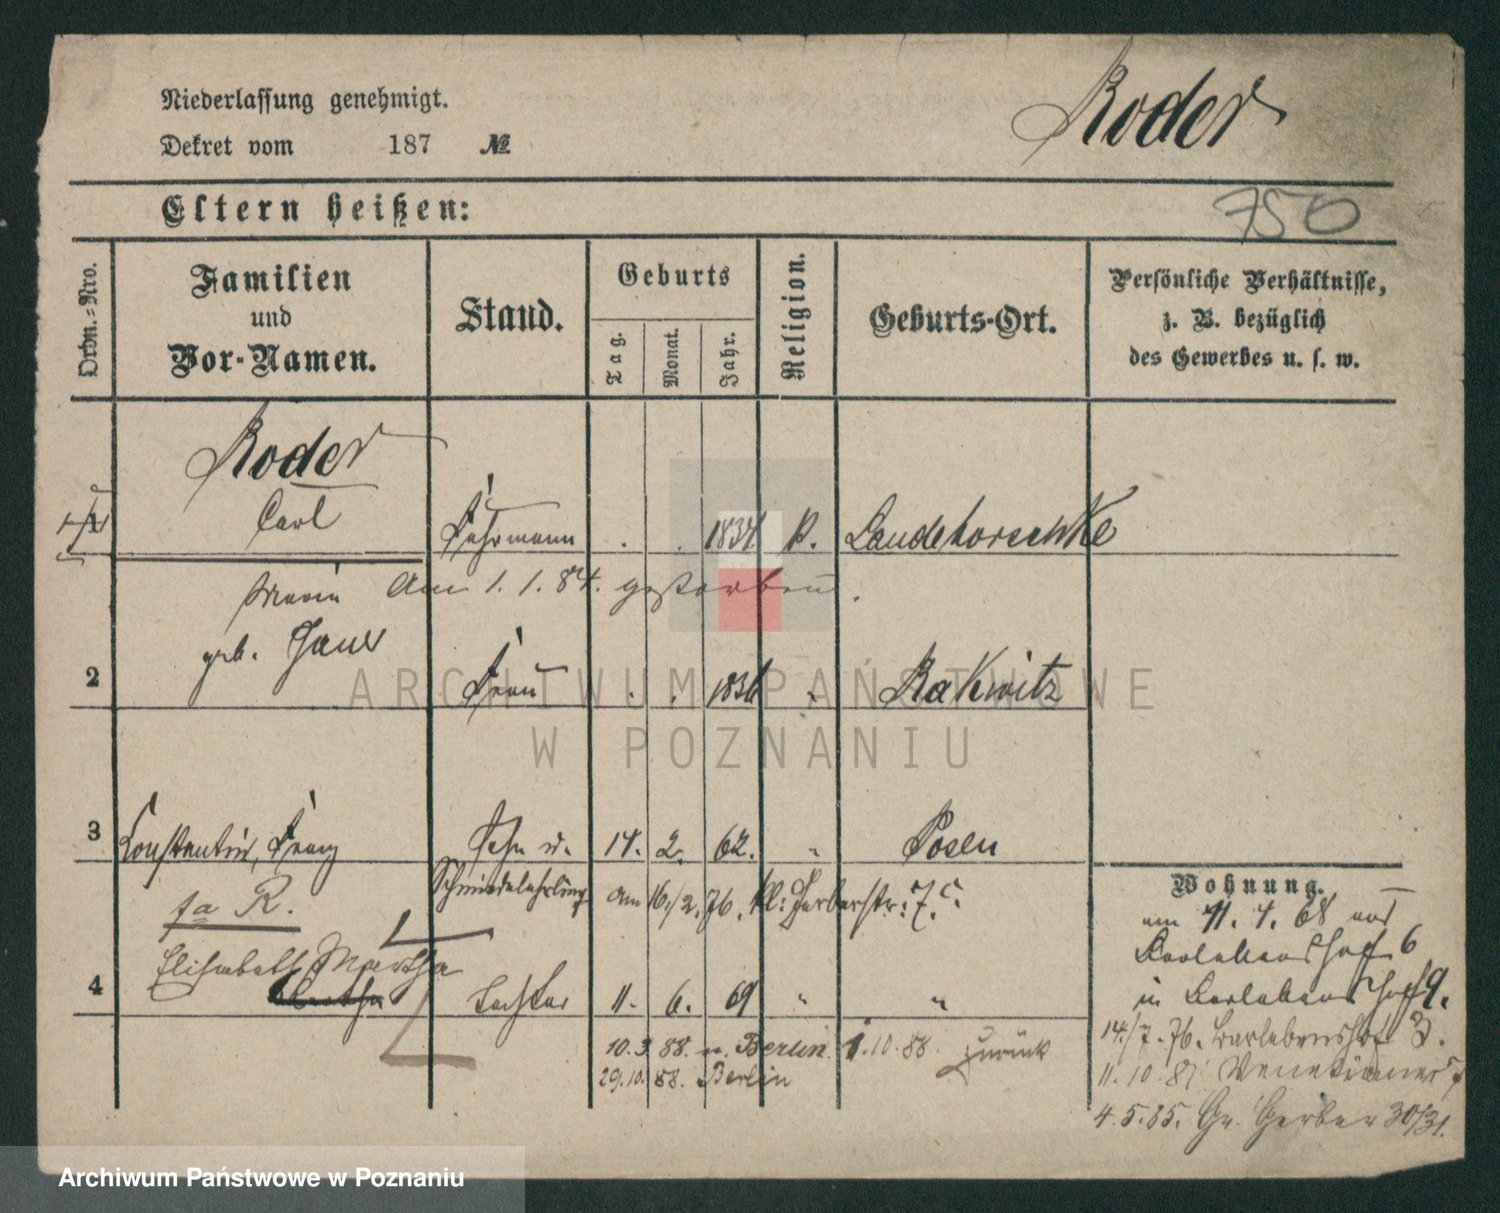 Niederlassung genehmigt.
Roder
Dekret vom 187 №
Eltern heißen:
750
Ordn.-Nro.
Familien
und
Vor-Namen.
Stand.
Geburts
Tag.
Monat.
Jahr.
Religion.
Geburts-Ort.
Persönliche Verhältnisse,
z. B. bezüglich
des Gewerbes u. s. w.
Roder
1 Carl Fuhrmann . . 1834 k.
Am 1. 1. 84. gestorben.
Maria
geb.
2 Frau . . 1836 " Rakwitz
3 Constantin, Franz Sohn u. 14. 2. 62. " Posen
Schmiedelehrling am 16./2. 76. kl: Gerberstr: 7.c.
fa R.
Elisabeth Martha
4 Tochter 11. 6. 69 " "
10.3.88. n. Berlin. 1.10.88. zurück
29.10.88. Berlin
Wohnung.
am 11. 4. 68 aus
Barlebenshof 6
in Barlebenshof 9.
14./7. 76. Barlebenshof 3.
11. 10. 81 Venetianer
4.5.85. Gr. Gerber 30/31.
ARCHIWUM PAŃSTWOWE
W POZNANIU
Archiwum Państwowe w Poznaniu